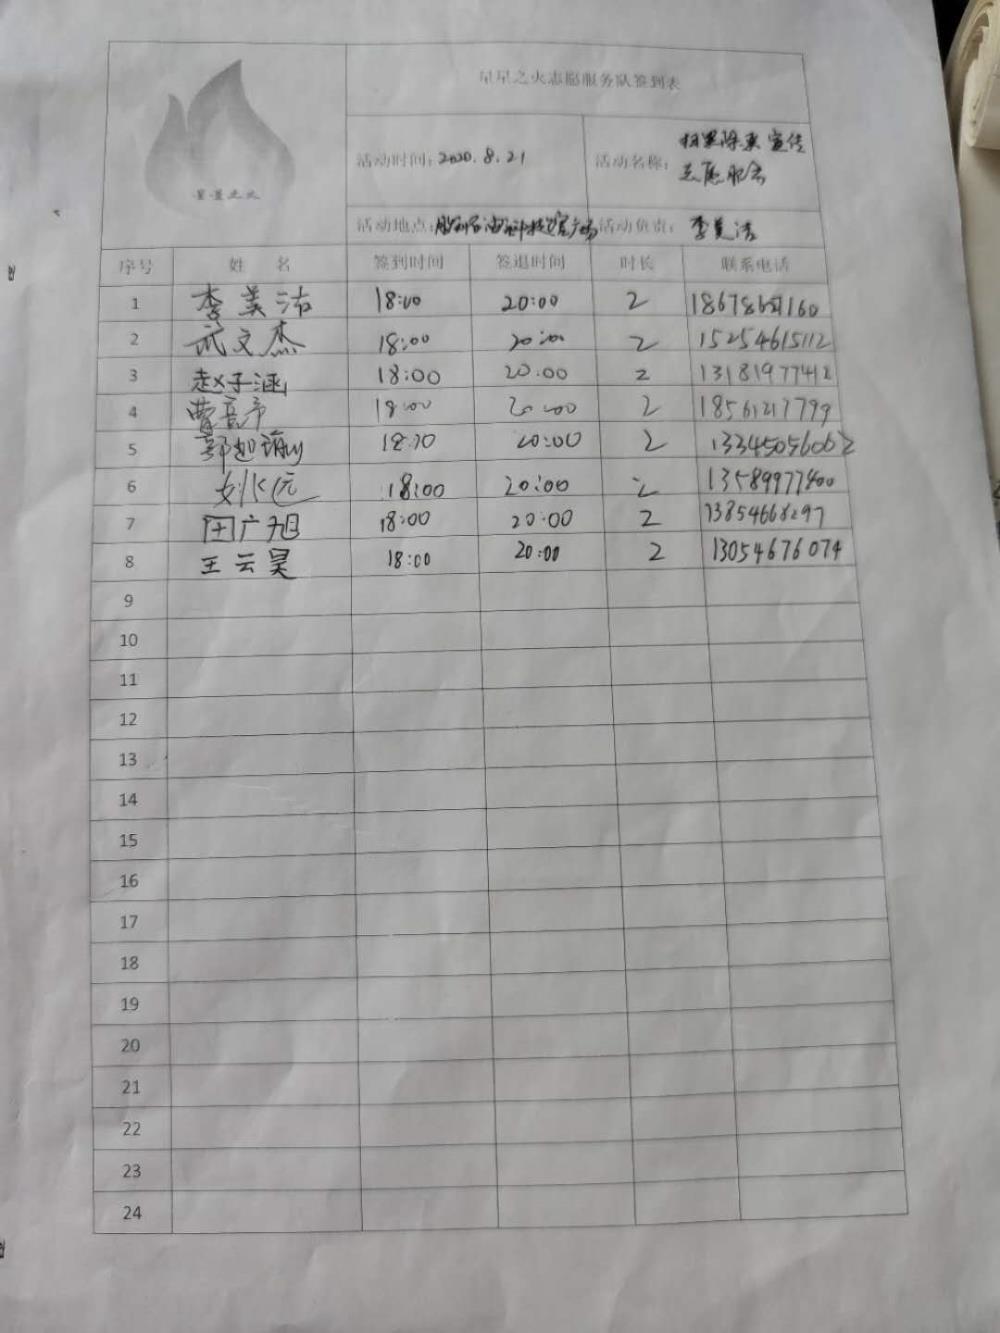 星星之火志愿服务队签到表
星星之火
活动时间：2020.8.21
活动名称：扫黑除恶宣传
志愿服务
活动地点：胜利石油科技馆广场
活动负责：李美洁
序号 姓 名 签到时间 签退时间 时长 联系电话
1 李美洁 18:00 20:00 2
2 武文杰 18:00 20:00 2 15254615112
3 赵子涵 18:00 20:00 2 13181977412
4 18:00 20:00 2 18561217799
5 20:00 2 13345056062
6 18:00 20:00 2 13589977400
7 田广旭 18:00 20:00 2 13854668297
8 王云昊 18:00 20:00 2 13054676074
9
10
11
12
13
14
15
16
17
18
19
20
21
22
23
24